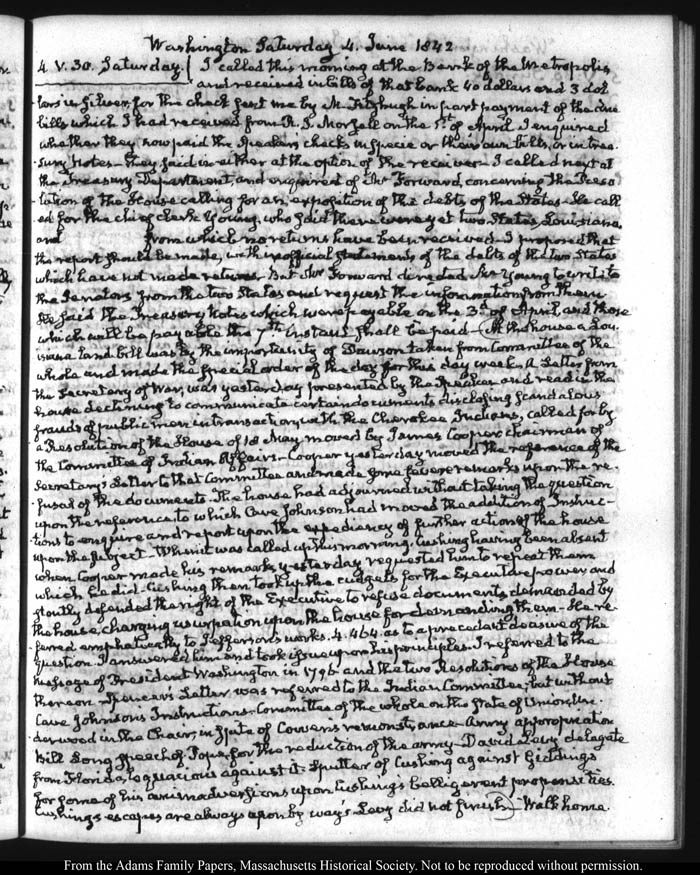 Washington Saturday 4. June 1842
4. V. 30. Saturday. I called this morning at the Bank of the Metropolis,
and received in bills of that bank 40 dollars and 3 dol
lars in Silver, for the check sent me by Mr Fitzhugh in part payment of the due
bills which I had received from R. S. on the 1st. of April I enquired
whether they now paid the Speakers checks in specie or their own bills, or in trea-
sury Notes— they said in either at the option of the receiver— I called next at
the Treasury Department, and enquired of Mr Forward, concerning the Reso-
lution of the House calling for an exposition of the debts of the States— He call
ed for the chief clerk Young, who said there were yet two States, Louisiana,
and from which no returns have been received— I proposed that
the report should be made, with unofficial statements of the debts of the two States
which have not made returns. But Mr Forward directed Mr Young to write to
the Senators from the two States and request the information from them
He said the Treasury Notes which were payable on the 3d. of April, and those
which will be payable the 7th instant shall be paid— At the house a Lou.
isiana land bill was by the importunity of Dawson taken from Committee of the
whole and made the special order of the day for this day week. A Letter from
the Secretary of War, was yesterday presented by the Speaker and read in the
house declining to communicate certain documents disclosing scandalous
frauds of public men in transactions with the Cherokee Indians, called for by
a Resolution of the House of 18 May moved by James Cooper chairman of
the Committee of Indian Affairs— Cooper yesterday moved the reference of the
Secretary's Letter to that Committee and made some severe remarks upon the re-
fusal of the documents. The house had adjourned without taking the question
upon the reference to which Cave Johnson had moved the addition of Instruc-
tions to enquire and report upon the expediency of further action of the house
upon the subject— When it was called up this morning, Cushing having been absent
when Cooper made his remarks yesterday requested him to repeat them
which he did— Cushing then took up the cudgels for the Executive power and
stoutly defended the right of the Executive to refuse documents demanded by
the house, charging usurpation upon the house for demanding them— He re-
ferred emphatically to Jefferson's works. 4. 464. as to a precedent decisive of the
question. I answered him and took issue upon his principles. I referred to the
message of President Washington in 1796 and the two Resolutions of the House
thereon— Spencer's Letter was referred to the Indian Committee, but without
Cave Johnsons Instructions. Committee of the whole on the State of Union, Un-
derwood in the Chair, in spite of Cowen's remonstrance— Army appropriation
Bill Long speech of Pope, for the reduction of the army— David Levy, delegate
from Florida, loquacious against it. Sputter of Cushing against Giddings
for some of his animadversions upon Cushing's belligerent propensities.
Cushings escapes are always upon by way's Levy did not finish— Walk home.
From the Adams Family Papers, Massachusetts Historical Society. Not to be reproduced without permission.